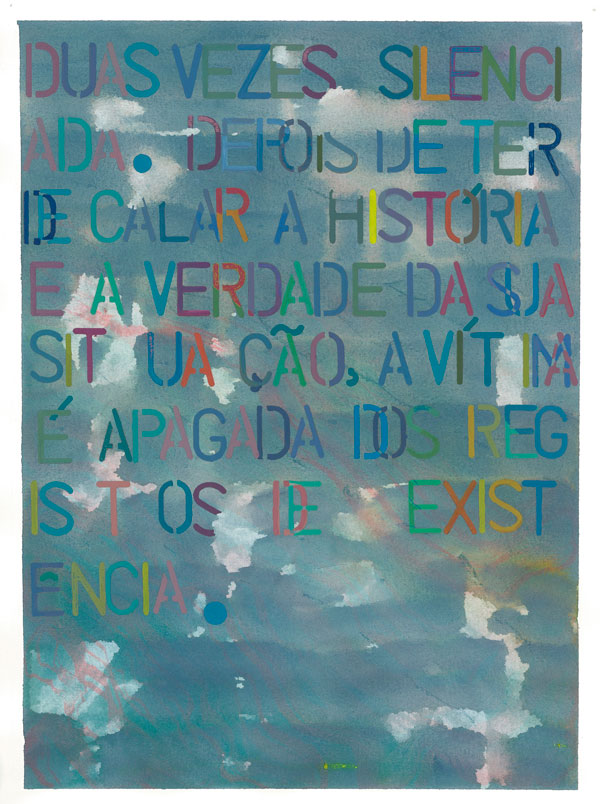 DUAS VEZES SILENCI
ADA. DEPOIS DE TER
DE CALAR A HISTÓRIA
E A VERDADE DA SUA
SIT UA ÇÃO, A VÍTIMA
É APAGADA DOS REG
IS T OS DE EXIST
ÊNCIA.